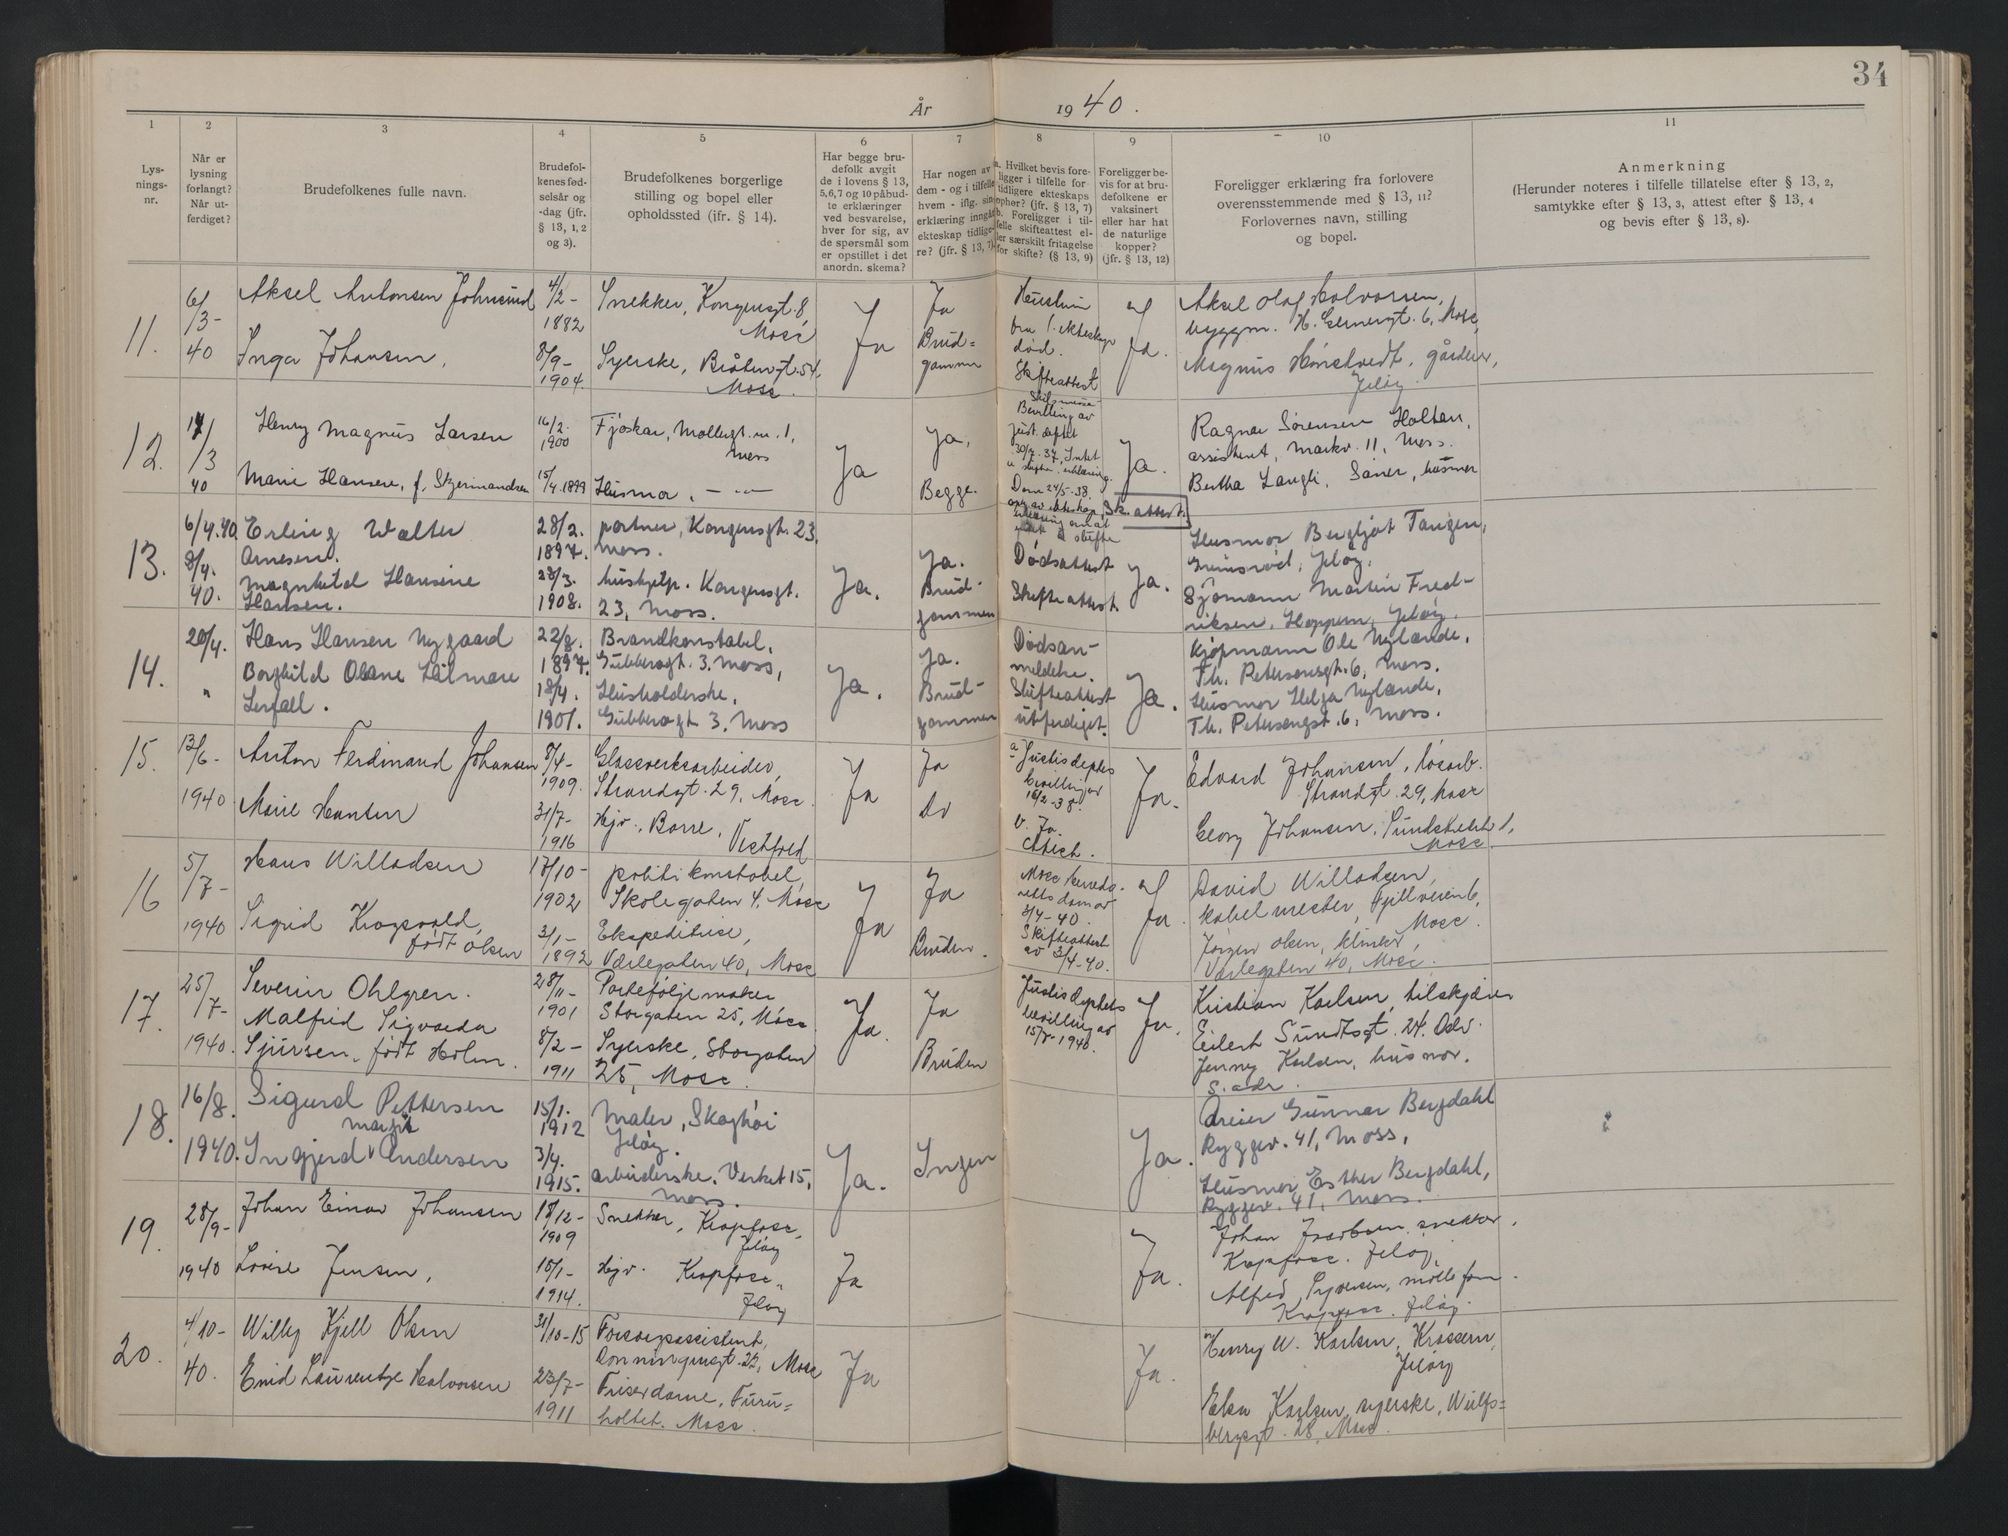 34
År 1940.
1 2 3 4 5 6 7 8 9 10 11
Lysningsnr.
Når er lysning forlangt? Når utferdiget?
Brudefolkenes fulle navn.
Brudefolkenes fødselsår og -dag (jfr. § 13, 1, 2 og 3).
Brudefolkenes borgerlige stilling og bopel eller opholdssted (jfr. § 14).
Har begge brudefolk avgit de i lovens § 13, 5,6,7 og 10 påbudte erklæringer ved besvarelse, hver for sig, av de spørsmål som er opstillet i det anordn. skema?
Har nogen av dem - og i tilfelle hvem - iflg. sin erklæring inngått ekteskap tidligere? (jfr. § 13, 7).
a. Hvilket bevis foreligger i tilfelle for tidligere ekteskaps opher? (jfr. § 13, 7)
b. Foreligger i tilfelle skifteattest eller særskilt fritagelse for skifte? (§ 13, 9)
Foreligger bevis for at brudefolkene er vaksinert eller har hat de naturlige kopper? (jfr. § 13, 12)
Foreligger erklæring fra forlovere overensstemmende med § 13, 11? Forlovernes navn, stilling og bopel.
Anmerkning
(Herunder noteres i tilfelle tillatelse efter § 13, 2, samtykke efter § 13, 3, attest efter § 13, 4 og bevis efter § 13, 8).
11.
6/3-40
Aksel Antonsen Johnsrud
4/2-1882
Snekker, Kongensgt. 8, Moss
Inga Johansen,
8/9-1904
Syerske, Bråtengt. 54, Moss.
Ja
Ja Brudgommen
Hustru fra 1. ekteskap død.
Skifteattest
Ja.
Aksel Olaf Halvorsen,
byggm. H. Gernersgt. 6, Moss,
Magnus Hønstvedt, gårdeier,
Jeløy
12.
/3 40
Henry Magnus Larsen
16/2. 1900
Fjøskar, Møllergt. nr. 1, Moss
Marie Hansen, f. Skjermandsen
15/4. 1899
Husmor. - " -
Ja
Ja, Begge.
Skilsmisse-
Bevilling av
just. deptet
30/4. 37,
Dom 24/5-38,
Sk. attest.
Ja.
Ragnar Sørensen Holten,
assistent, Markv. 11, Moss.
Bertha Langli, Såner, husmor
13.
6/4.40.
8/4. 40.
Erling Walter
Arnesen.
28/2. 1897.
portner, Kongensgt. 23,
Moss.
Magnhild Hansine
Hansen.
28/3. 1908.
hushjelp. Kongensgt.
23, Moss.
Ja.
Ja. Brudgommen
Dødsattest
Skifteattest.
Ja.
Husmor Bergljot Tangen,
Grimsrød, Jeløy.
Sjømann Martin Fredriksen, Hoppern, Jeløy.
14.
20/4.
"
Hans Hansen Nygaard
22/8. 1897.
Brandkonstabel,
Gubberogt. 3. Moss,
Borghild Oleane Hilmare
Lerfall.
18/4. 1901.
Husholderske,
Gubberogt 3, Moss
Ja.
Ja. Brudgommen
Dødsanmeldelse.
Skifteattest
utferdiget.
Ja.
Kjøpmann Ole Nylænde,
Th. Petersensgt. 6, Moss.
Husmor Helga Nylænde,
Th. Petersensgt. 6, Moss.
15.
13/6-1940
Anton Ferdinand Johansen
8/4-1909.
Glassverksarbeider,
Strandgt. 29, Moss.
Marie Hansen
31/7-1916
Hjv., Borre, Vestfold
Ja
Ja
Do
a Justisdeptets
bevilling av
16/2-38.
b. Ja.
attest.
Ja.
Edvard Johansen, løsarb.
Strandgt. 29, Moss
Georg Johansen, Moss.
16
5/7-1940
Hans Willadsen
17/10-1902
politikonstabel,
Skolegaten 4, Moss
Sigrid Krogsvold,
født Olsen
3/1-1892
Ekspeditrise,
Varlegaten 40, Moss
Ja
Ja
Bruden.
Moss herreds-
retts dom av
3/4-40.
Skifteattest
av 3/4-40.
Ja.
David Willadsen,
kabelmester, Fjellveien 6,
Moss.
Jørgen Olsen, klinker,
Varlegaten 40, Moss.
17.
25/7-1940.
Severin Ohlgren.
28/11-1901
Porteføljemaker
Storgaten 25, Moss.
Malfrid Sigvarda
Sjursen, født Holm.
8/2-1911
Syerske, Storgaten
25, Moss.
Ja.
Ja
Bruden
Justisdeptets
bevilling av
15/7-1940.
Ja.
Kristian Karlsen, tilskjærer
Eilert Sundtsgt. 24. Oslo.
Jenny Karlsen, husmor.
S. adr.
18.
16/8. 1940.
Sigurd Pettersen
15/1. 1912
Maler, Skoghøi
Jeløy.
Margit
Ingjerd v Andersen
3/4. 1915.
arbeiderske. Verket 15,
Moss.
Ja.
Ingen
Ja.
Dreier Gunnar Bergdahl
Ryggev. 41, Moss,
Husmor Esther Bergdahl,
Ryggev. 41, Moss.
19.
28/9-1940
Johan Einar Johansen
18/12-1909
Snekker, Kropfoss,
Jeløy
Lovise Jensen,
15/1-1914.
Hjv. Kropfoss,
Jeløy
Ja
Ja.
Johan snekker,
Kropfoss. Jeløy
Alfred Syversen, mølleform.
Kropfoss. Jeløy.
20.
4/10-40.
Willy Kjell Olsen
31/10-15
Forsorgsassistent,
Dronningensgt. 27, Moss
Enid Laurentze Halvorsen
23/7-1911
Friserdame, Furuholtet. Moss.
Ja
Ja.
Henry W. Karlsen, Krossern,
Jeløy
Elsa Karlsen, syerske, Wulfsbergsgt. 28, Moss.